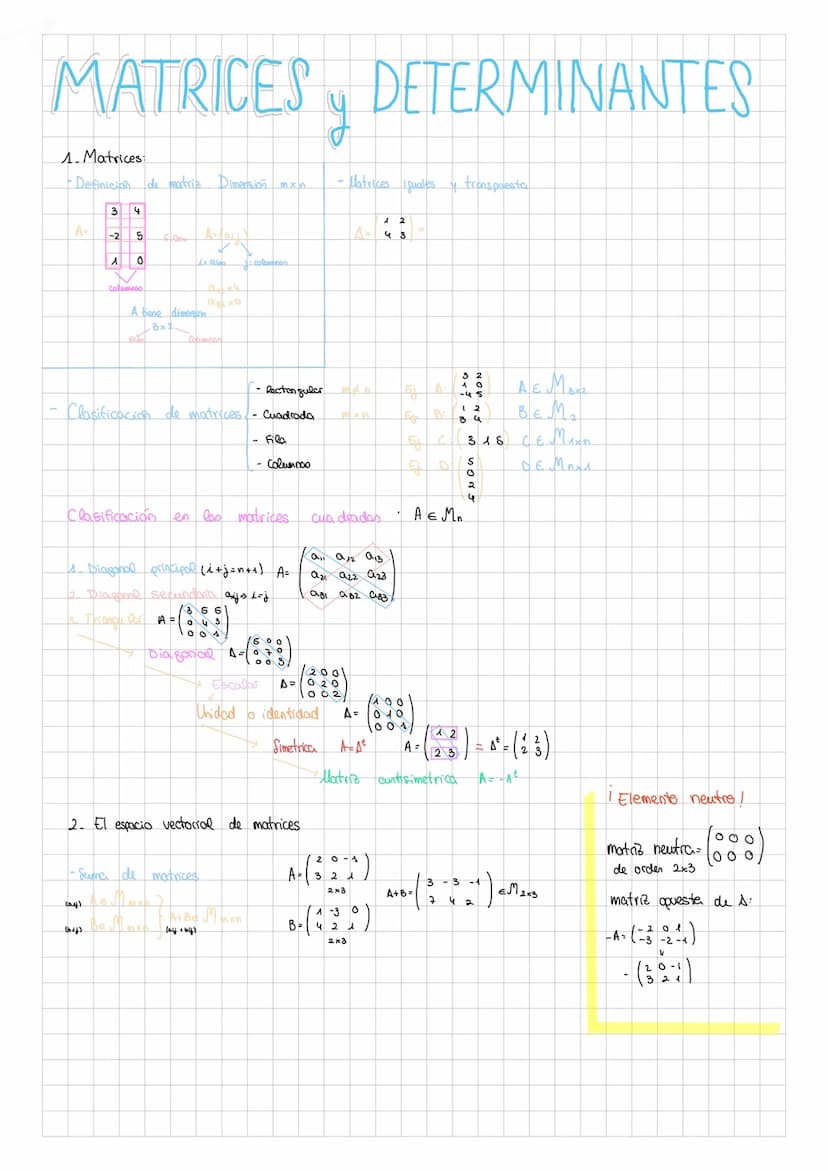 MATRICES y DETERMINANTES
1. Matrices:
- Definición de matriz Dimensión mxn
A= 3 4
-2 5 filas A=(aij)
1 0 i=filas j=columnas
columnas
a12=4
a32=0
A tiene dimensión
3x2
filas columnas
- Matrices iguales y transpuesta
A= ( 1 2
4 3 ) =
- Clasificación de matrices
- Rectangular m≠n Ej A: ( 3 2
1 0
-4 5 ) A ∈ M3x2
- Cuadrada m=n Ej B: ( 1 2
3 4 ) B ∈ M2
- Fila Ej C: ( 3 1 5 ) C ∈ M1xn
- Columnas Ej D: ( 5
0
2
4 ) D ∈ Mnx1
Clasificación en las matrices cuadradas · A ∈ Mn
1. Diagonal principal (i+j=n+1) A= ( a11 a12 a13
a21 a22 a23
a31 a32 a33 )
2. Diagonal secundaria aij> i=j
Triangular A = ( 3 5 6
0 4 3
0 0 1 )
Diagonal A= ( 6 0 0
0 7 0
0 0 3 )
Escalar A= ( 2 0 0
0 2 0
0 0 2 )
Unidad o identidad A= ( 1 0 0
0 1 0
0 0 1 )
Simetrica A=At A = ( 1 2
2 3 ) = At = ( 1 2
2 3 )
Matriz antisimetrica A= -At
2. El espacio vectorial de matrices
- Suma de matrices
(aij) A ∈ Mmxn
(bij) B ∈ Mmxn
A+B ∈ Mmxn
(aij + bij)
A= ( 2 0 -1
3 2 1 )
2x3
B= ( 1 -3 0
4 2 1 )
2x3
A+B= ( 3 -3 -1
7 4 2 ) ∈ M2x3
¡ Elemento neutro !
matriz neutra= ( 0 0 0
0 0 0 )
de orden 2x3
matriz opuesta de A:
-A= ( -2 0 1
-3 -2 -1 )
- ( 2 0 -1
3 2 1 )